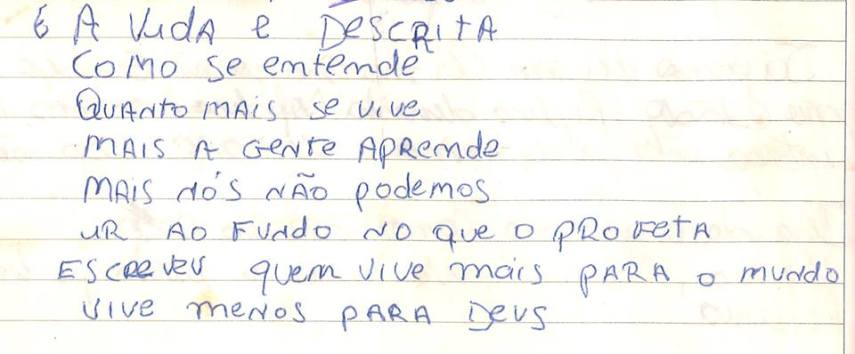 6 A VidA e DESCRITA
COMO Se emtemde
QUANTO MAIS Se VIVE
MAIS A GENTE APRemde
MAIS NÓS NÃO Podemos
UR AO FUNdo NO que o PROFETA
ESCREVEU quem VIVE mais PARA o mundo
VIVE menos PARA DEUS